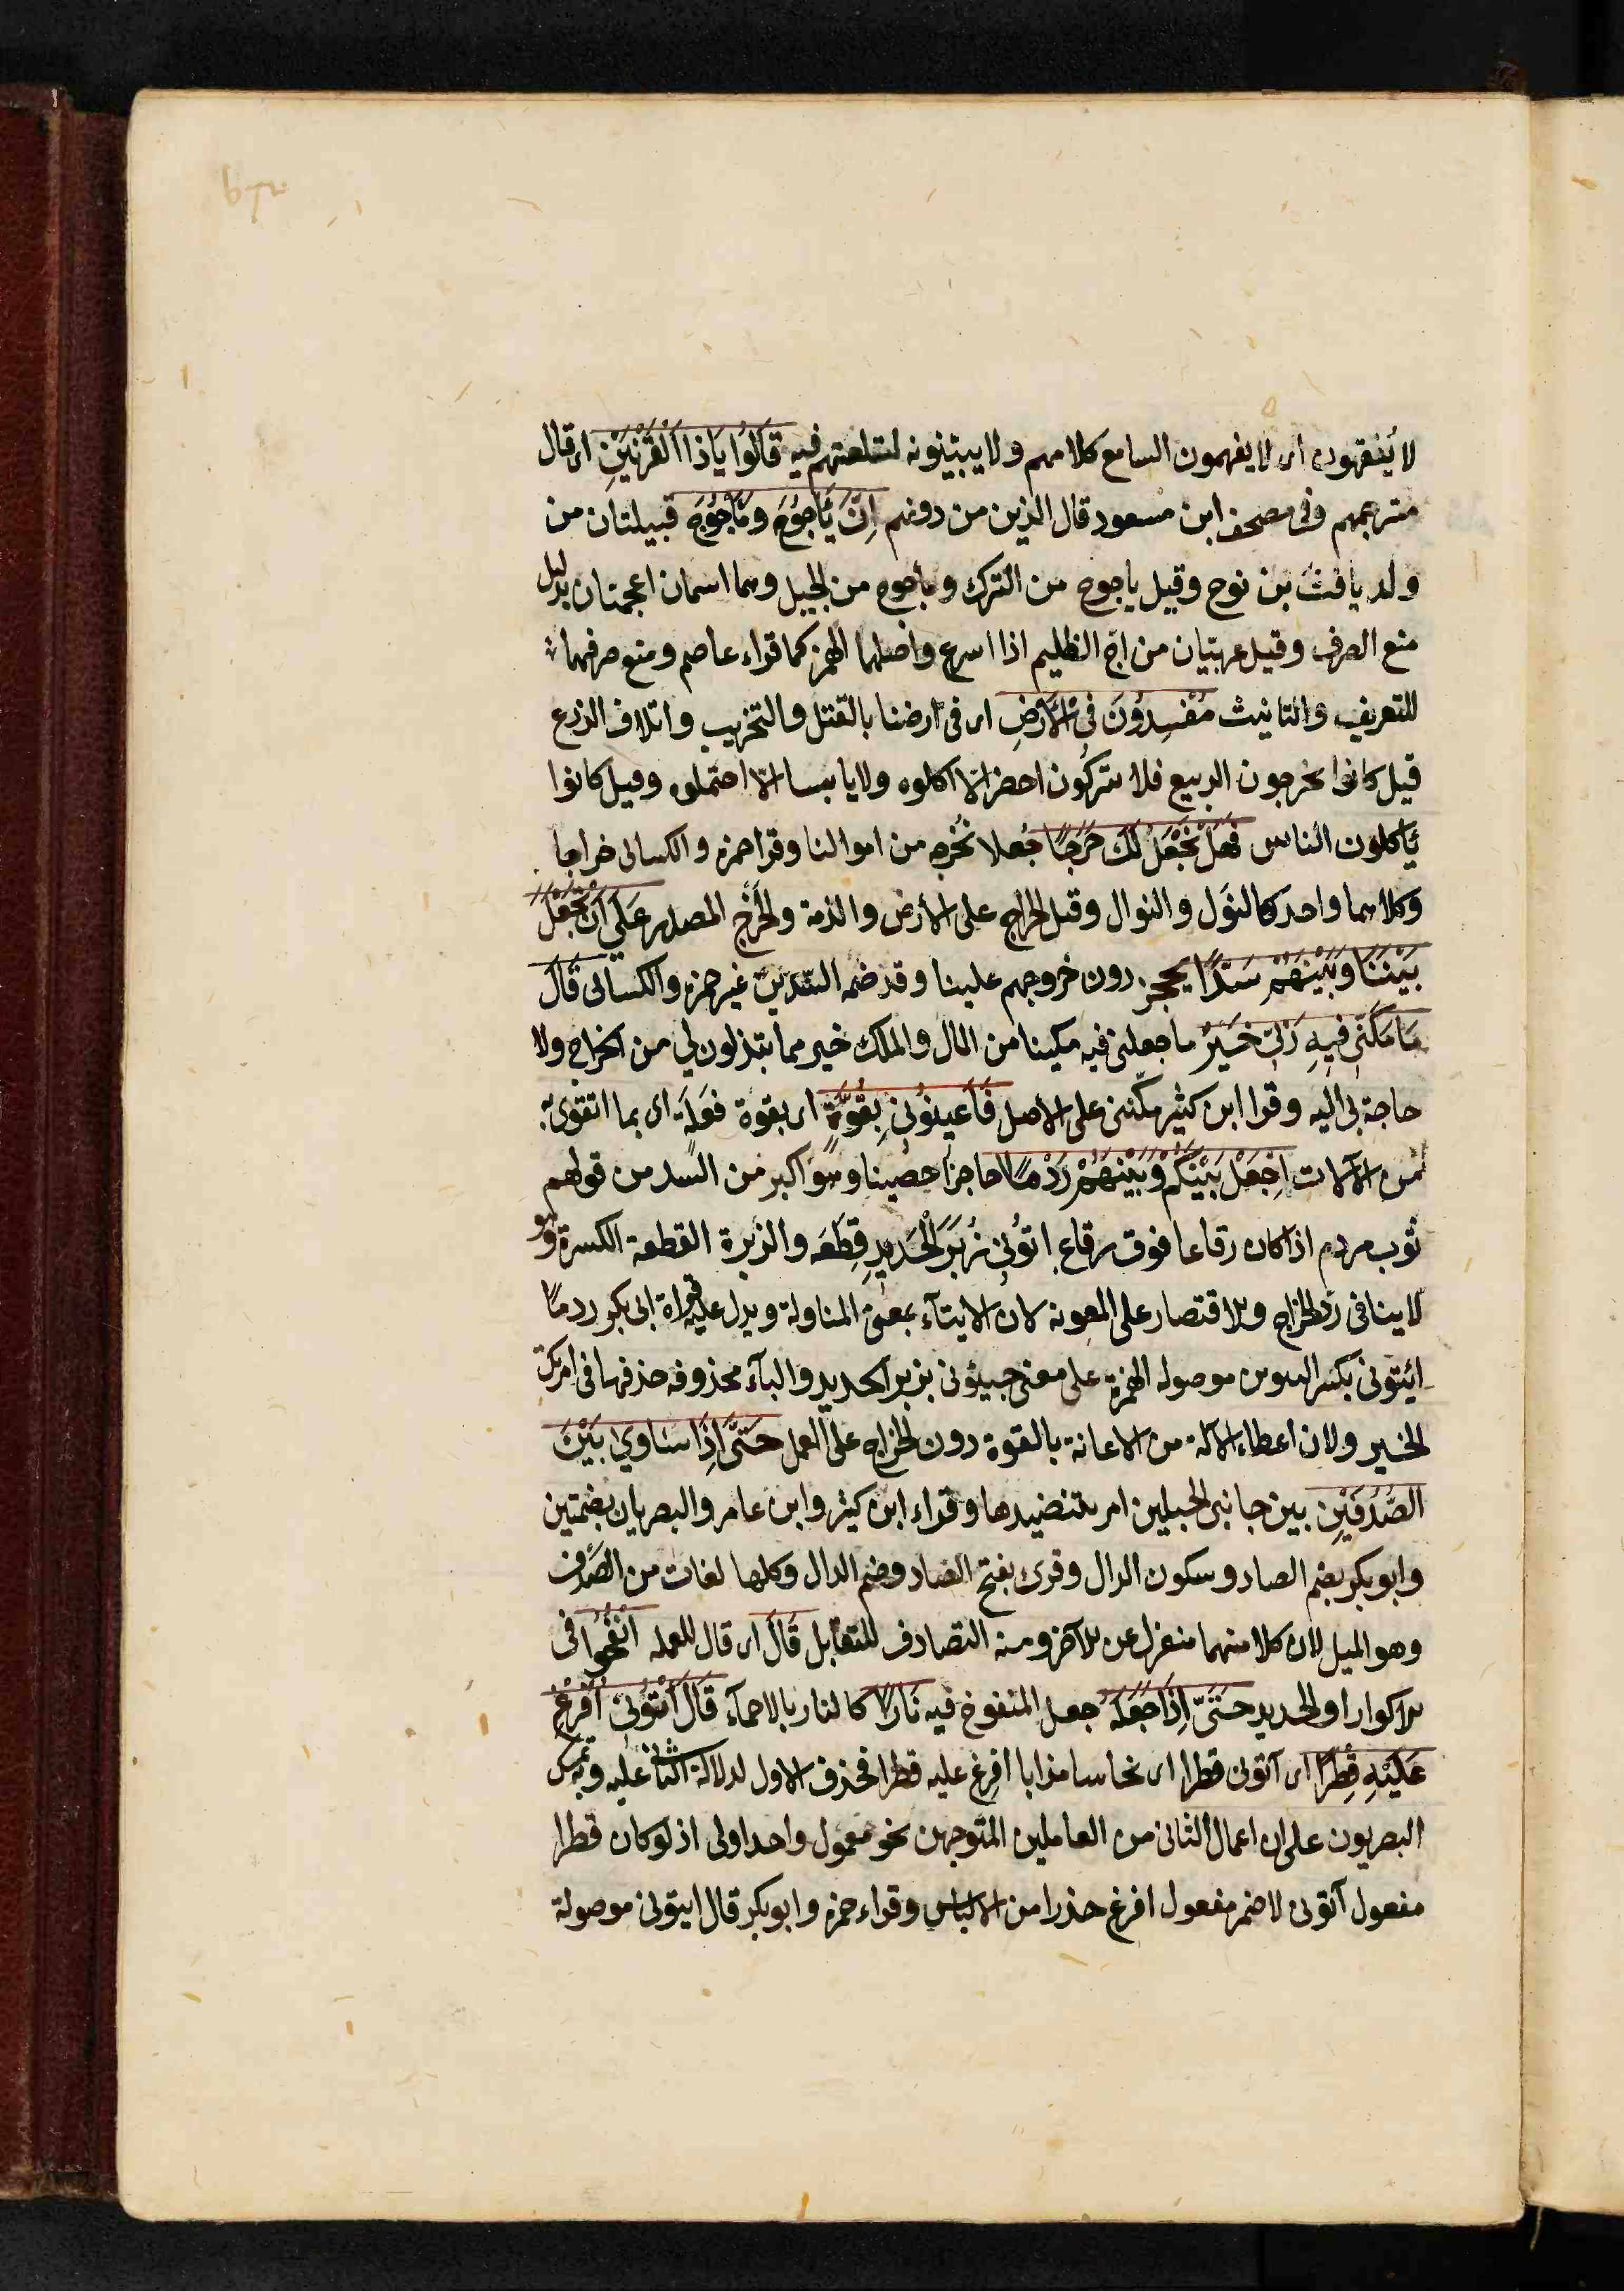 لا يُفقهون اى لا يفهمون السامع كلامهم ولا يبيّنونه لتلعثهم فيه قَالُوا يَاذَا الْقَرْنَيْنِ اى قال
مترجمهم وفى مصحف ابن مسعود قال الذين من دونهم اِنَّ يَأْجُوجَ وَمَأْجُوجَ قبيلتان من
ولد يافث بن نوح وقيل ياجوج من الترك وماجوج من الجيل وهما اسمان اعجميتان بدليل
منع الصرف وقيل عربيّان من اجّ الظليم اذا اسرع واصلهما الهمز كما قراء عاصم ومنع صرفهما
للتعريف والتانيث مُفْسِدُونَ فِى الْاَرْضِ اى فى ارضنا بالقتل والتخريب واتلاف الزرع
قيل كانوا يخرجون الربيع فلا يتركون اخضر الّا اكلوه ولا يابسا الّا احتملوه وقيل كانوا
يَأكلون الناس فَهَلْ نَجْعَلُ لَكَ خَرْجًا جُعلا نُخرجه من اموالنا وقرا حمزه والكسائى خراجا
وكلاهما واحد كالنَول والنوال وقيل الخراج على الارض والذمة والخَرْج المصدر عَلَى اَنْ تَجْعَلَ
بَيْنَنَا وَبَيْنَهُمْ سَدًّا يحجز دون خروجهم علينا وقد ضمه السّدين غير حمزه والكسائى قَالَ
مَا مَكَّنِّى فِيهِ رَبِّى خَيْرٌ ما جعلنى فيه مكينا من المال والملك خير مما تبذلون لى من الخراج ولا
حاجة بى اليه وقرا ابن كثير مكّننى على الاصل فَاَعِينُونِى بِقُوَّةٍ اى بقوة فَعَلَة اى بما اتقوى به
من الآلات اَجْعَلْ بَيْنَكُمْ وَبَيْنَهُمْ رَدْمًا حاجزا حصينا وهو اكبر من السد من قولهم
ثوب مردم اذا كان رقاعا فوق رقاع اتُونِى زُبَرَ الْحَدِيدِ قِطَعَه والزبرة القطعة الكبيرة وهو
لا ينافى ردّ الخراج والاقتصار على المعونه لان الايتآء بمعنى المناولة ويدل عليه قراة ابى بكر ردمًا
ائيتونى بكسر التنوين موصوله الهمزة على معنى جيئونى بزبر الحديد والبآء محذوفه حذفها فى امرتك
الخير ولان اعطاء الآلة من الاعانة بالقوة دون الخراج على العمل حَتَّى اِذَا سَاوَى بَيْنَ
الصَّدَفَيْنِ بين جانبى الجبلين امر بتنضيدها وقراء ابن كثير وابن عامر والبصريان بضمتين
وابوبكر بضم الصاد وسكون الدال وقرى بفتح الصاد وضم الدال وكلها لغات من الصَدف
وهو الميل لان كلا منهما منعزل عن الآخر ومنه التصادف للتقابل قَالَ اى قال للعمله انْفُخُوا فى
الاكوار او الحديد حَتَّى اِذَا جَعَلَهُ جعل المنفوخ فيه نَارًا كالنار بالاحمآء قَالَ اٰتُونِى اُفْرِغْ
عَلَيْهِ قِطْرًا اى آتونى قطرا اى نحاسا مذابا افرغ عليه قطرا فحذف الاول لدلالة الثانى عليه وبه تمسك
البصريون على ان اعمال الثانى من العاملين المتوجهين نحو معمول واحد اولى اذ لو كان قطرا
مفعول آتونى لاضمر مفعول افرغ حذرا من الالباس وقراء حمزه وابوبكر قال ايتونى موصولة